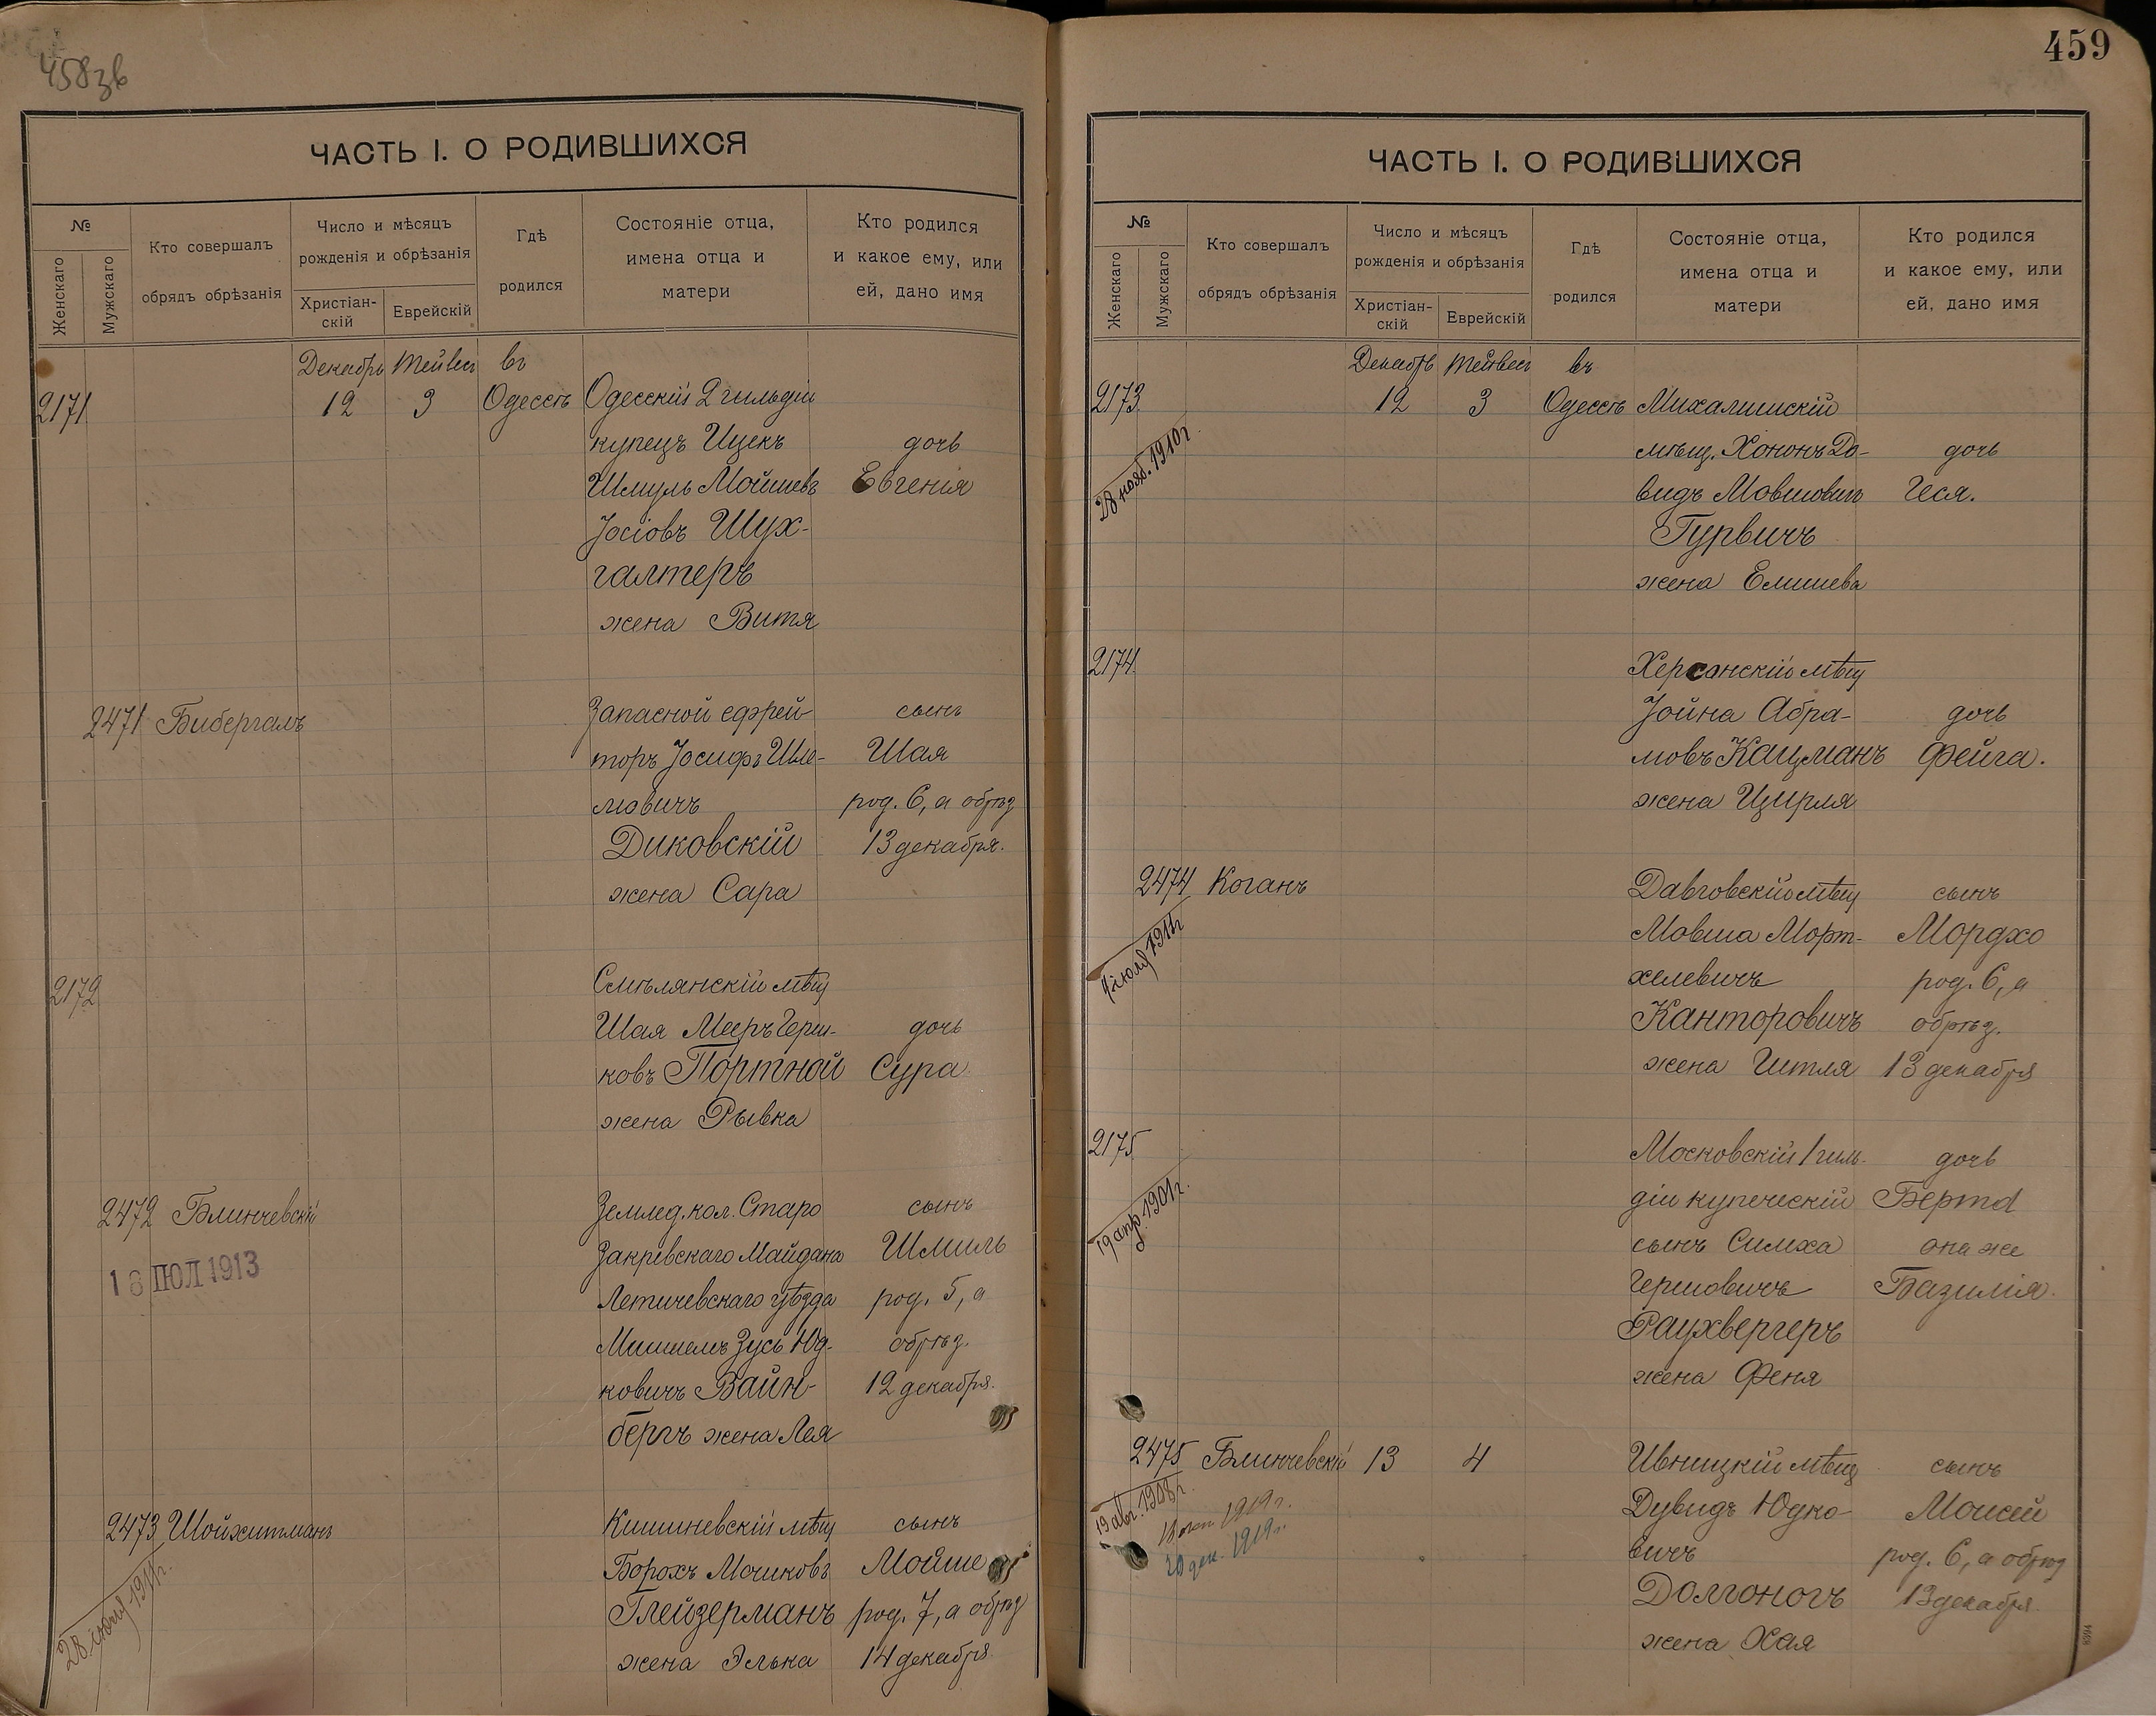 458зв
ЧАСТЬ I. О РОДИВШИХСЯ
№
Женскаго
Мужскаго
Кто совершалъ
обрядъ обрѣзанія
Число и мѣсяцъ
рожденія и обрѣзанія
Христіан-
скій
Еврейскій
Гдѣ
родился
Состояніе отца,
имена отца и
матери
Кто родился
и какое ему, или
ей, дано имя
Декабрь Тейвесъ въ
2171 12 3 Одессѣ Одесскій 2 гильдіи
купецъ Ицекъ дочь
Шмуль Мойшевъ Евгенія
Іосіовъ Шух-
галтеръ
жена Витя
2471 Бибергалъ Запасной ефрей- сынъ
торъ Іосифъ Шле- Шая
мовичъ род. 6, а обрѣз
Диковскій 13 декабря.
жена Сара
2172 Смѣлянскій мѣщ
Шая Мееръ Герш- дочь
ковъ Портной Сура
жена Рывка
2472 Блинчевскій Землед. кол. Старо сынъ
18 ІЮЛ 1913
Закревскаго Майдана Шмиль
Летичевскаго уѣзда род. 5, а
Зусь Юд- обрѣз.
ковичъ Вайн- 12 декабря.
бергъ жена Лея
2473 Шойхитманъ Кишиневскій мѣщ сынъ
28 іюля 1911г.
Борохъ Мошковъ Мойше
Глейзерманъ род. 7, а обрѣз
жена Элька 14 декабря
459
ЧАСТЬ I. О РОДИВШИХСЯ
№
Женскаго
Мужскаго
Кто совершалъ
обрядъ обрѣзанія
Число и мѣсяцъ
рожденія и обрѣзанія
Христіан-
скій
Еврейскій
Гдѣ
родился
Состояніе отца,
имена отца и
матери
Кто родился
и какое ему, или
ей, дано имя
Декабрь Тейвесъ въ
2173 12 3 Одессѣ Михалишскій
28 нояб. 1910г
мѣщ. Хононъ Да- дочь
видъ Мовшовичъ Геся.
Гурвичъ
жена Елишева
2174 Херсонскій мѣщ
Іойна Абра- дочь
мовъ Кацманъ Фейга.
жена Цирля
2474 Коганъ Давговскій мѣщ сынъ
1911г
Мовша Морт- Мордхо
хелевичъ род. 6, а
Канторовичъ обрѣз.
жена Гитля 13 декабря
2175 Московскій 1 гиль- дочь
19 апр. 1901г.
діи купеческій Берта
сынъ Симха она же
Гершовичъ Базилія.
Раухвергеръ
жена Феня
2475 Блинчевскій 13 4 Ивницкій мѣщ сынъ
19 авг. 1908г.
1919г.
20 дек. 1919г.
Дувидъ Юдко- Моисей
вичъ род. 6, а обрѣз
Долгоногъ 13 декабря.
жена Хая